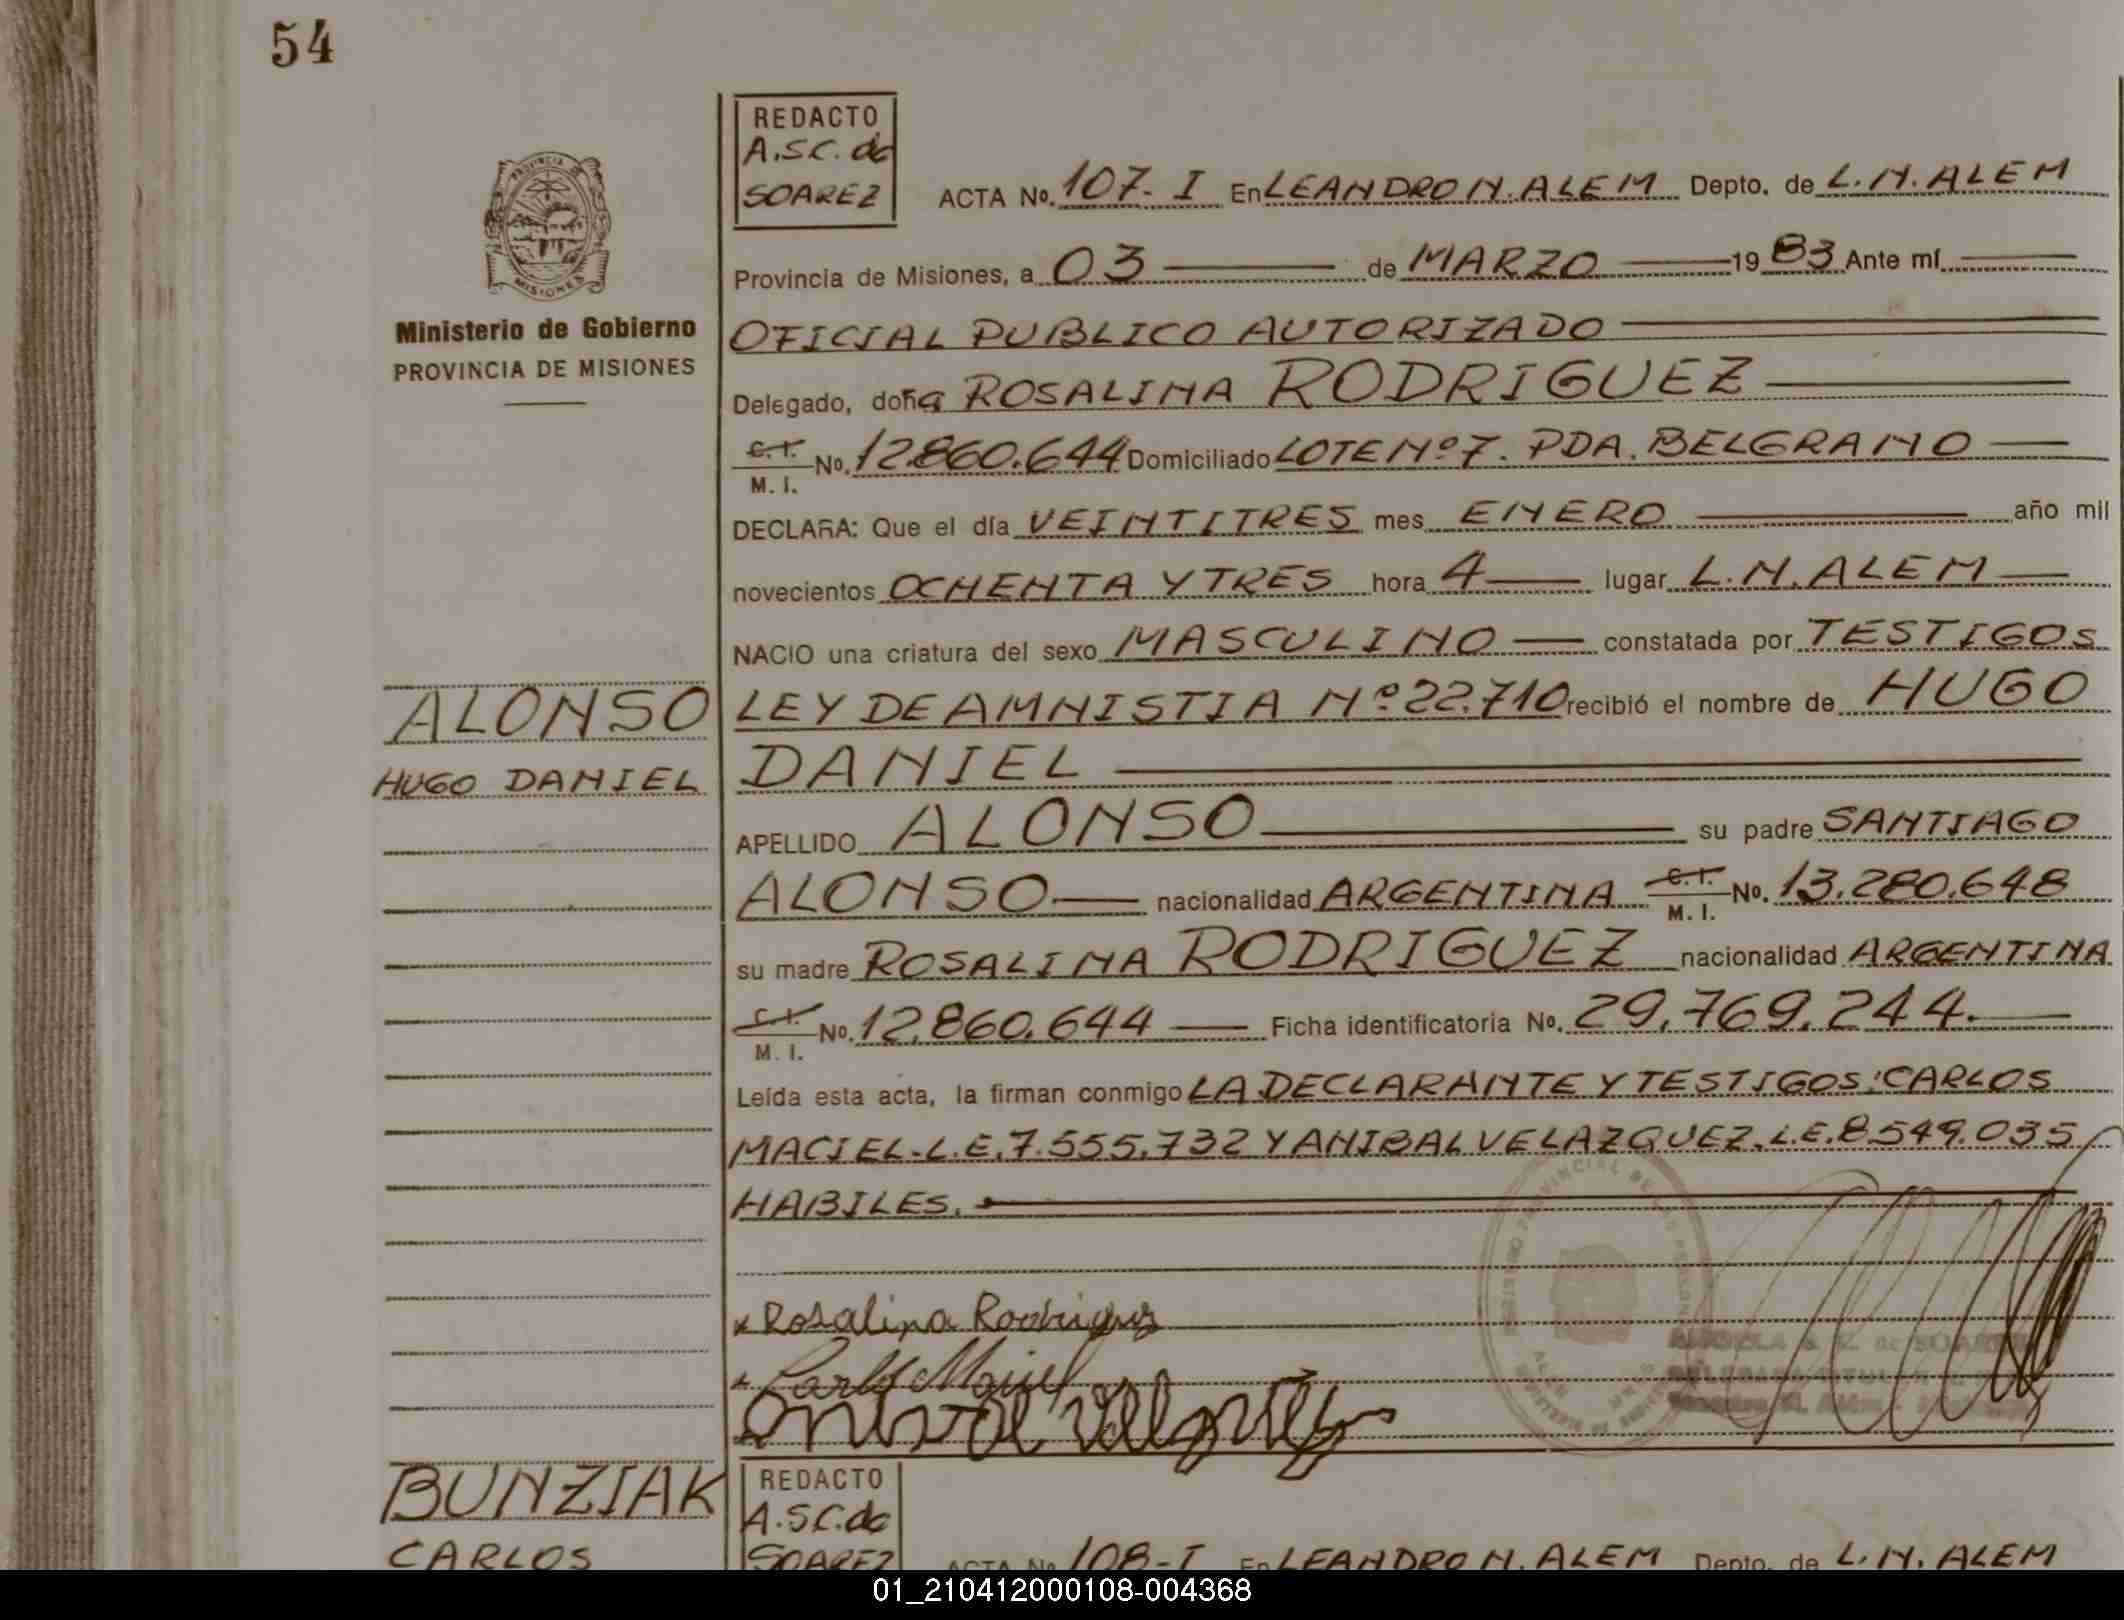 54
PROVINCIA DE
MISIONES
Ministerio de Gobierno
PROVINCIA DE MISIONES
REDACTO
A.S.C. de
SOAREZ
ACTA No. 107-I En LEANDRO N. ALEM Depto. de L.N. ALEM
Provincia de Misiones, a 03 de MARZO 1983 Ante mí
OFICIAL PUBLICO AUTORIZADO
Delegado, doña ROSALINA RODRIGUEZ
C.I. M.I. No. 12.860.644 Domiciliado LOTE Nº 7. PDA. BELGRANO
DECLARA: Que el día VEINTITRES mes ENERO año mil
novecientos OCHENTA Y TRES hora 4 lugar L.N. ALEM
NACIO una criatura del sexo MASCULINO constatada por TESTIGOS
ALONSO
HUGO DANIEL
LEY DE AMNISTIA Nº 22.710 recibió el nombre de HUGO
DANIEL
APELLIDO ALONSO su padre SANTIAGO
ALONSO nacionalidad ARGENTINA C.I. M.I. No. 13.280.648
su madre ROSALINA RODRIGUEZ nacionalidad ARGENTINA
C.I. M.I. No. 12.860.644 Ficha identificatoria No. 29.769.244.
Leída esta acta, la firman conmigo LA DECLARANTE Y TESTIGOS: CARLOS
MACIEL-L.E. 7.555.732 Y ANIBAL VELAZQUEZ. L.E. 8.549.035
HABILES.
Rosalina Rodriguez
BUNZIAK
CARLOS
REDACTO
A.S.C. de
SOAREZ
ACTA No. 108-I En LEANDRO N. ALEM Depto. de L.N. ALEM
01_210412000108-004368